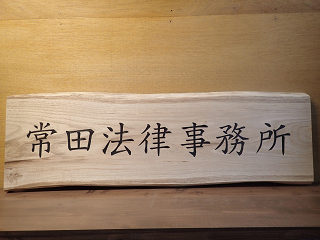 常田法律事務所